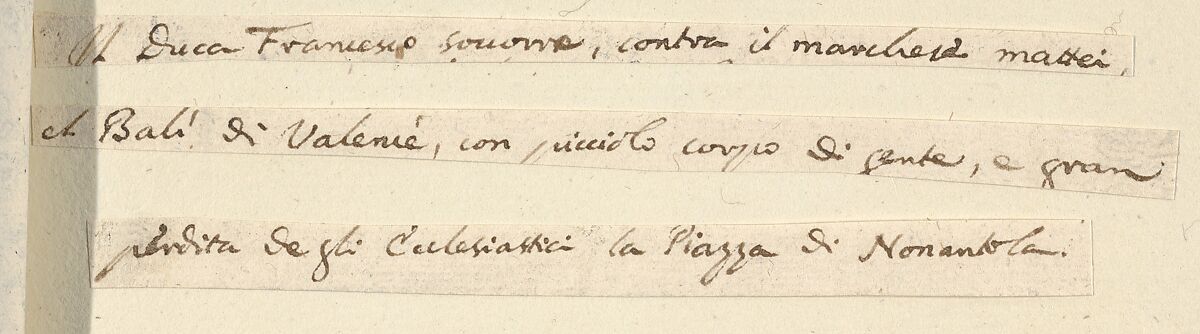 Il Duca Francesco socorre, contra il marchese mattei,
et Balí di Valencé, con picciolo corpo di gente, e gran
perdita de gli Ecclesiastici la Piazza di Nonantola.